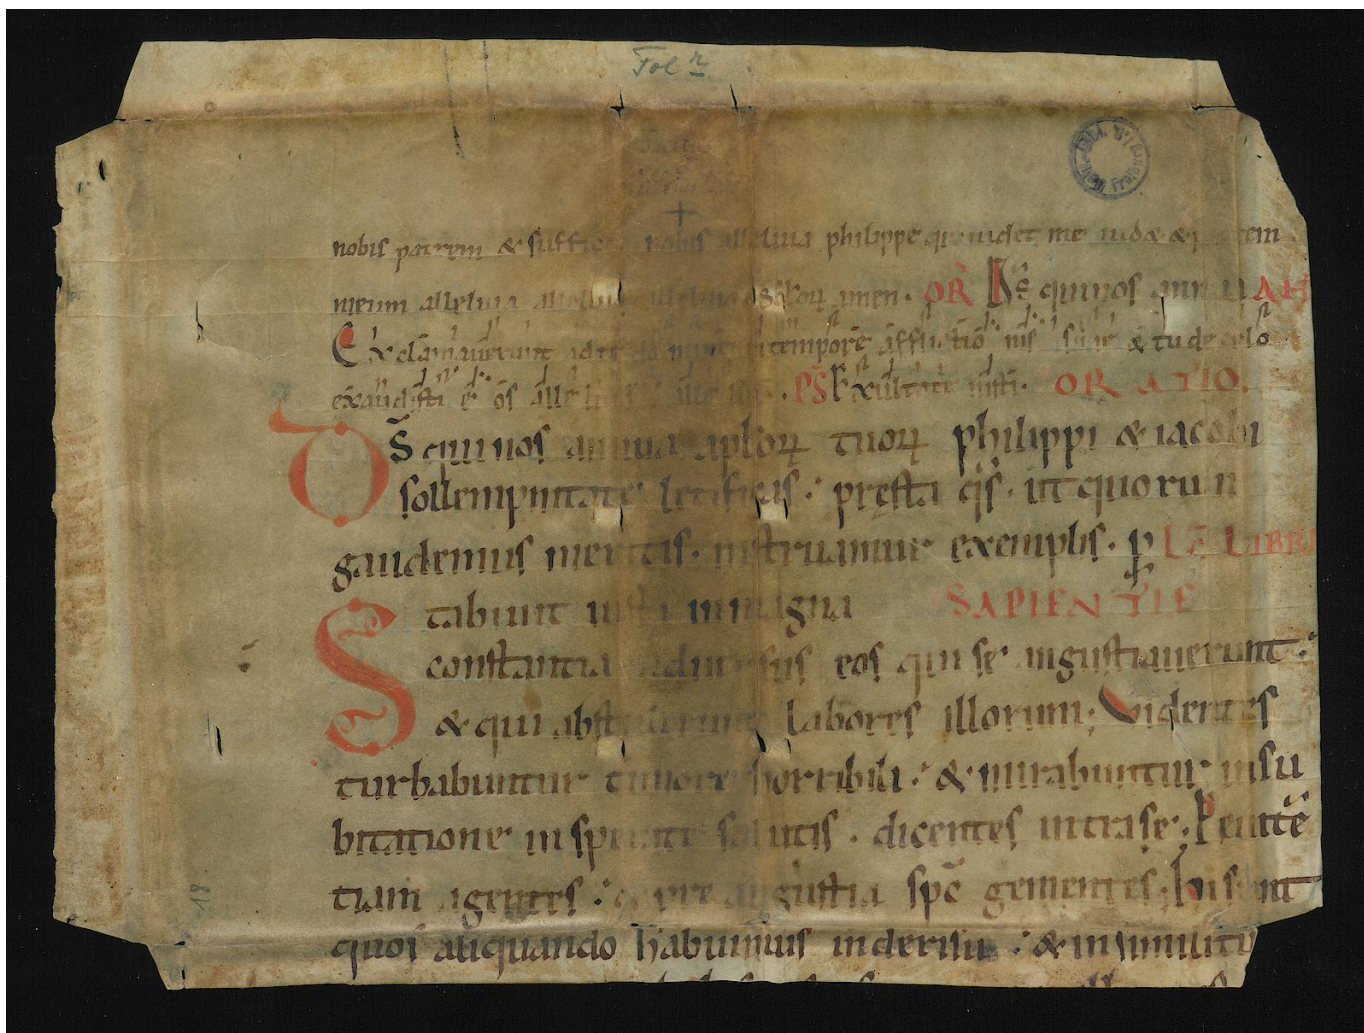 Fol r
nobis patrem & sufficit nobis alleluia philippe qui uidet me uidet & patrem
meum alleluia alleluia alleluia. S aplorꝝ amen. OR D̄s qui nos annua AÑ
Exclamauerunt ad te domine in tempore afflictiōis sue & tu de celo
exaudisti eos alleluia alleluia. PS Exultate iusti. ORATIO.
D̄s qui nos annua aplorꝝ tuorꝝ philippi & iacobi
sollempnitate letificas. pręsta q̄s. ut quorum
gaudemus meritis. instruamur exemplis. p LC̄ LIBRI
Stabunt iusti in magna SAPIENTIE
constantia aduersus eos qui se angustiauerunt.
& qui abstulerunt labores illorum; Videntes
turbabuntur timore horribili. & mirabuntur in su
bitatione insperate salutis. dicentes intra se. Penitē
tiam agentes. & pre angustia spc̄ gementes. hi sunt
quos aliquando habuimus in derisu. & in similitu
18